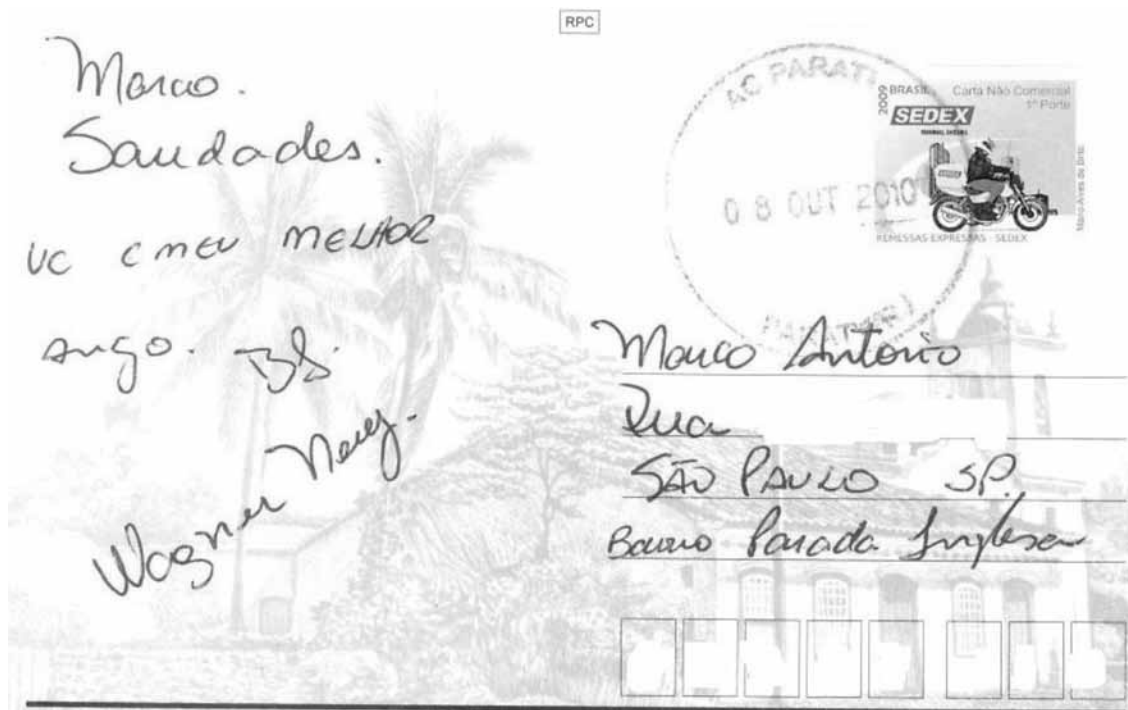 RPC
Marco.
Saudades.
vc é meu MELHOR
amigo. Bjs.
Wagner Ney.
AC PARATI
08 OUT 2010
PARATI (RJ)
2009 BRASIL Carta Não Comercial
1º Porte
SEDEX
REMESSAS EXPRESSAS - SEDEX
Marco Antonio
Rua
SÃO PAULO SP.
Bairro Parada Inglesa